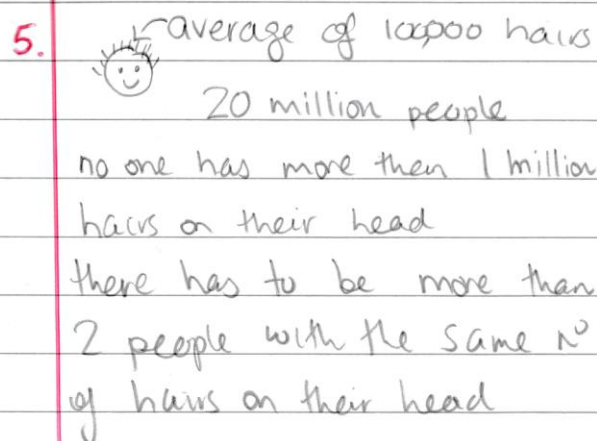 5. average of 100,000 hairs
20 million people
no one has more then 1 million
hairs on their head
there has to be more than
2 people with the same Nº
of hairs on their head